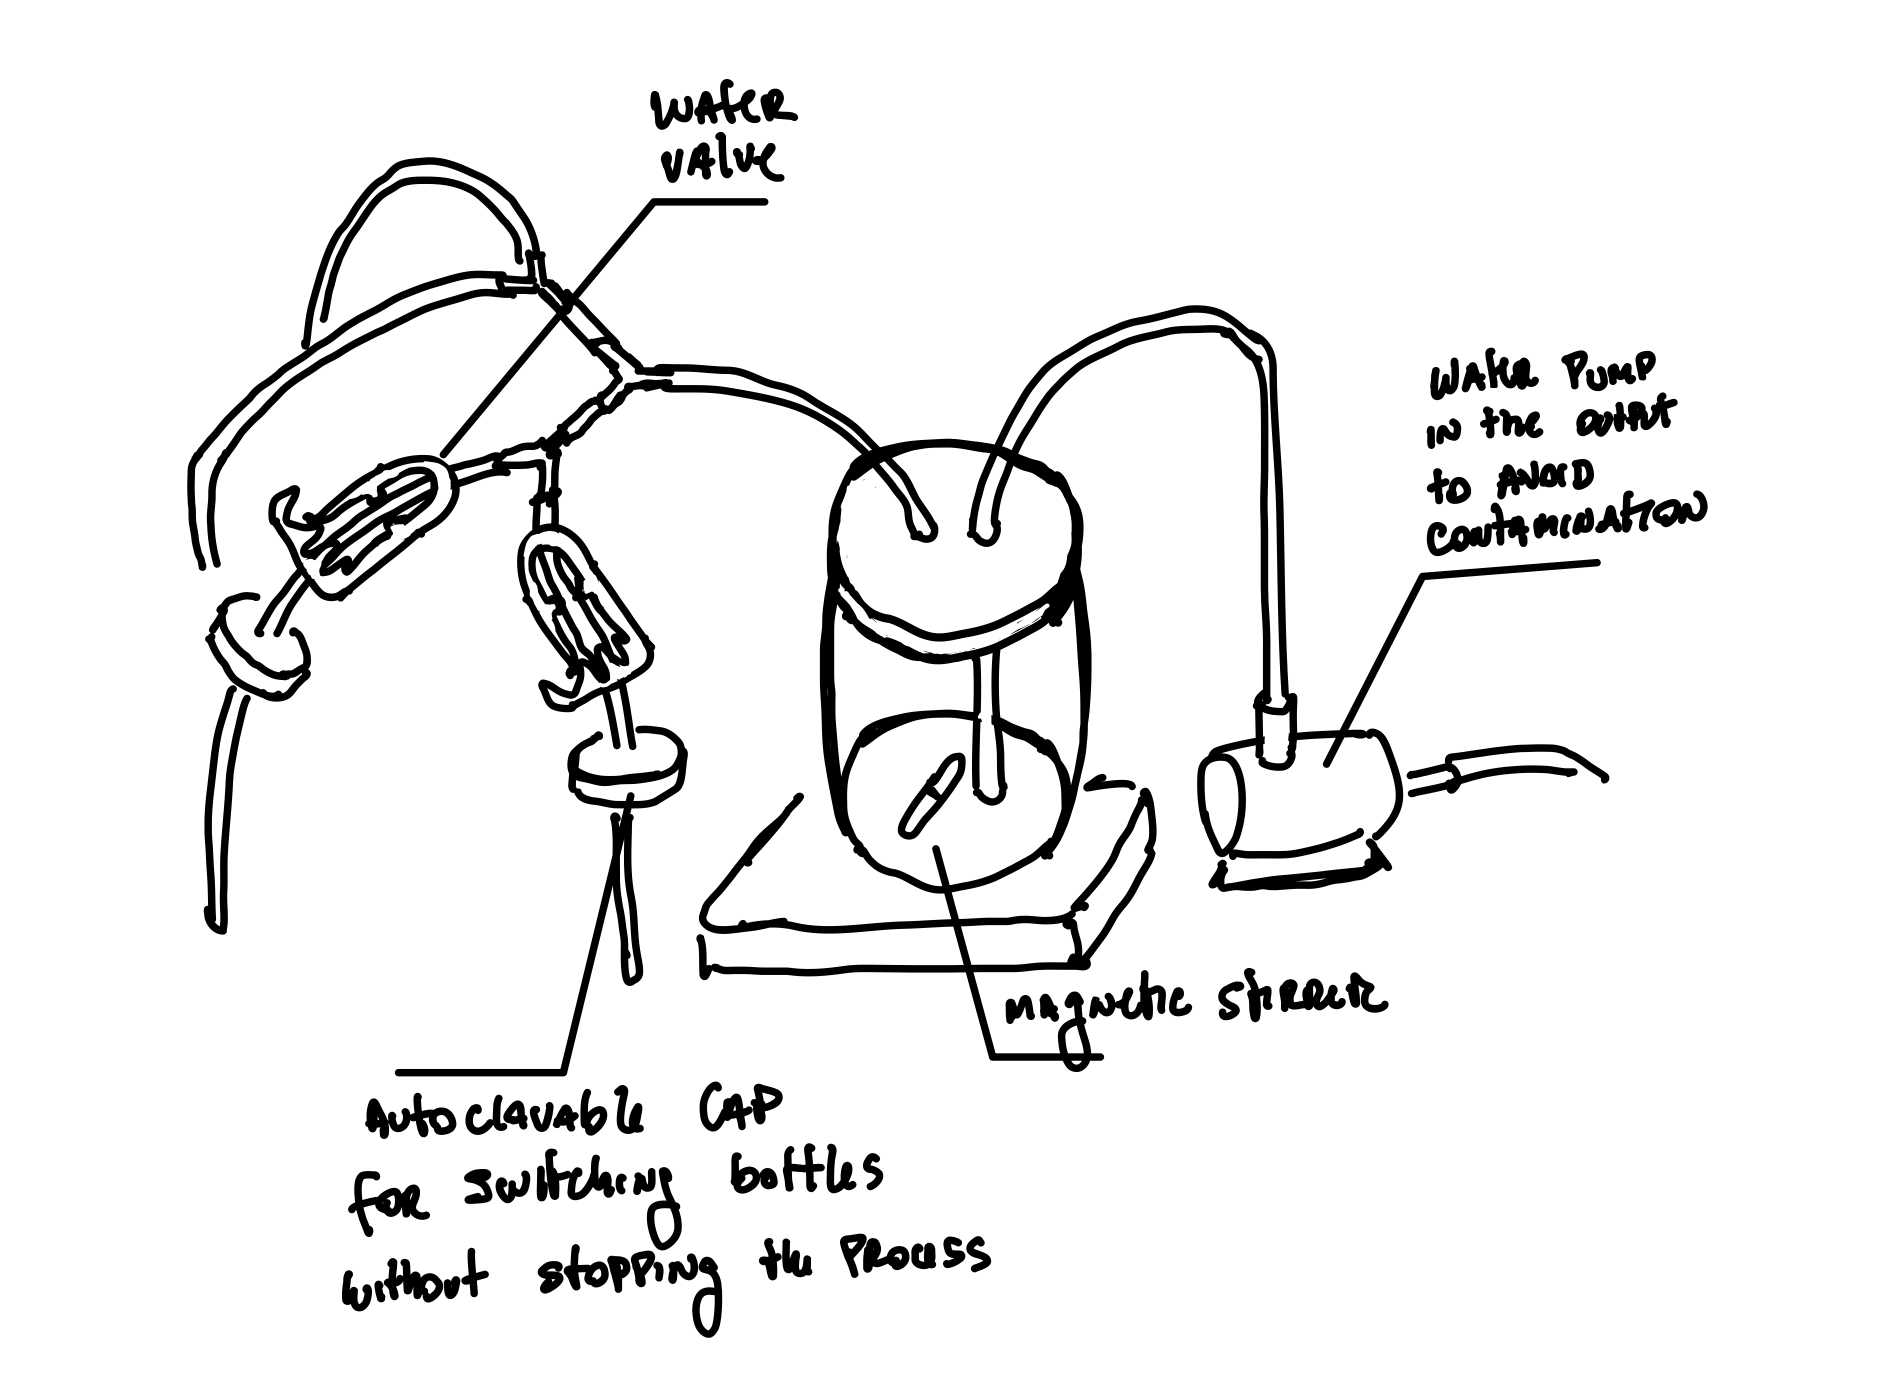 WATER
VALVE
WATER PUMP
IN the OUTPUT
TO AVOID
CONTAMINATION
MAgNetic StiRReR
Autoclavable CAP
FOR Switching bottles
without stopping the PROCESS